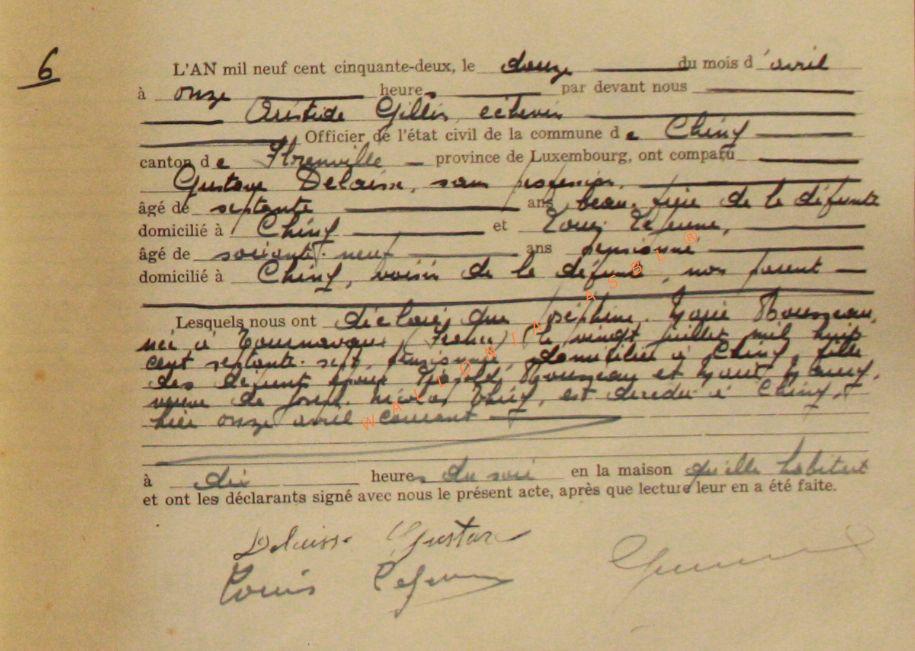 6
L'AN mil neuf cent cinquante-deux, le douze du mois d'avril
à onze heures par devant nous
Aristide Gillis, échevin
Officier de l'état civil de la commune de Chiny
canton de Florenville province de Luxembourg, ont comparu
Gustave Delaisse, sans profession,
âgé de septante ans beau-frère de la défunte
domicilié à Chiny et Louis Lejeune,
âgé de soixante-neuf ans pensionné
domicilié à Chiny, voisin de la défunte, non parent
Lesquels nous ont déclaré que Joséphine Marie Rousseau,
née à Tournavaux (France) le vingt juillet mil huit
cent septante-sept, pensionnée domiciliée à Chiny, fille
des défunts époux Rousseau et
veuve de Joseph Nicolas, est décédée à Chiny,
hier onze avril courant
à dix heures du soir en la maison qu'elle habitait
et ont les déclarants signé avec nous le présent acte, après que lecture leur en a été faite.
Delaisse Gustave
Louis Lejeune
WALLONIA ASBL ©